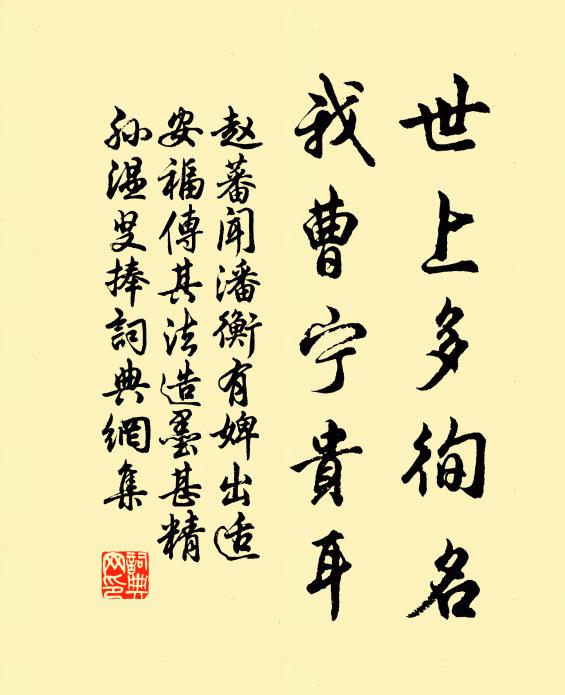 世上多徇名
我曹宁貴耳
赵蕃闻潘衡有婢出适
安福傳其法造墨甚精
孙温叟捧詞典網集
詞典
网印